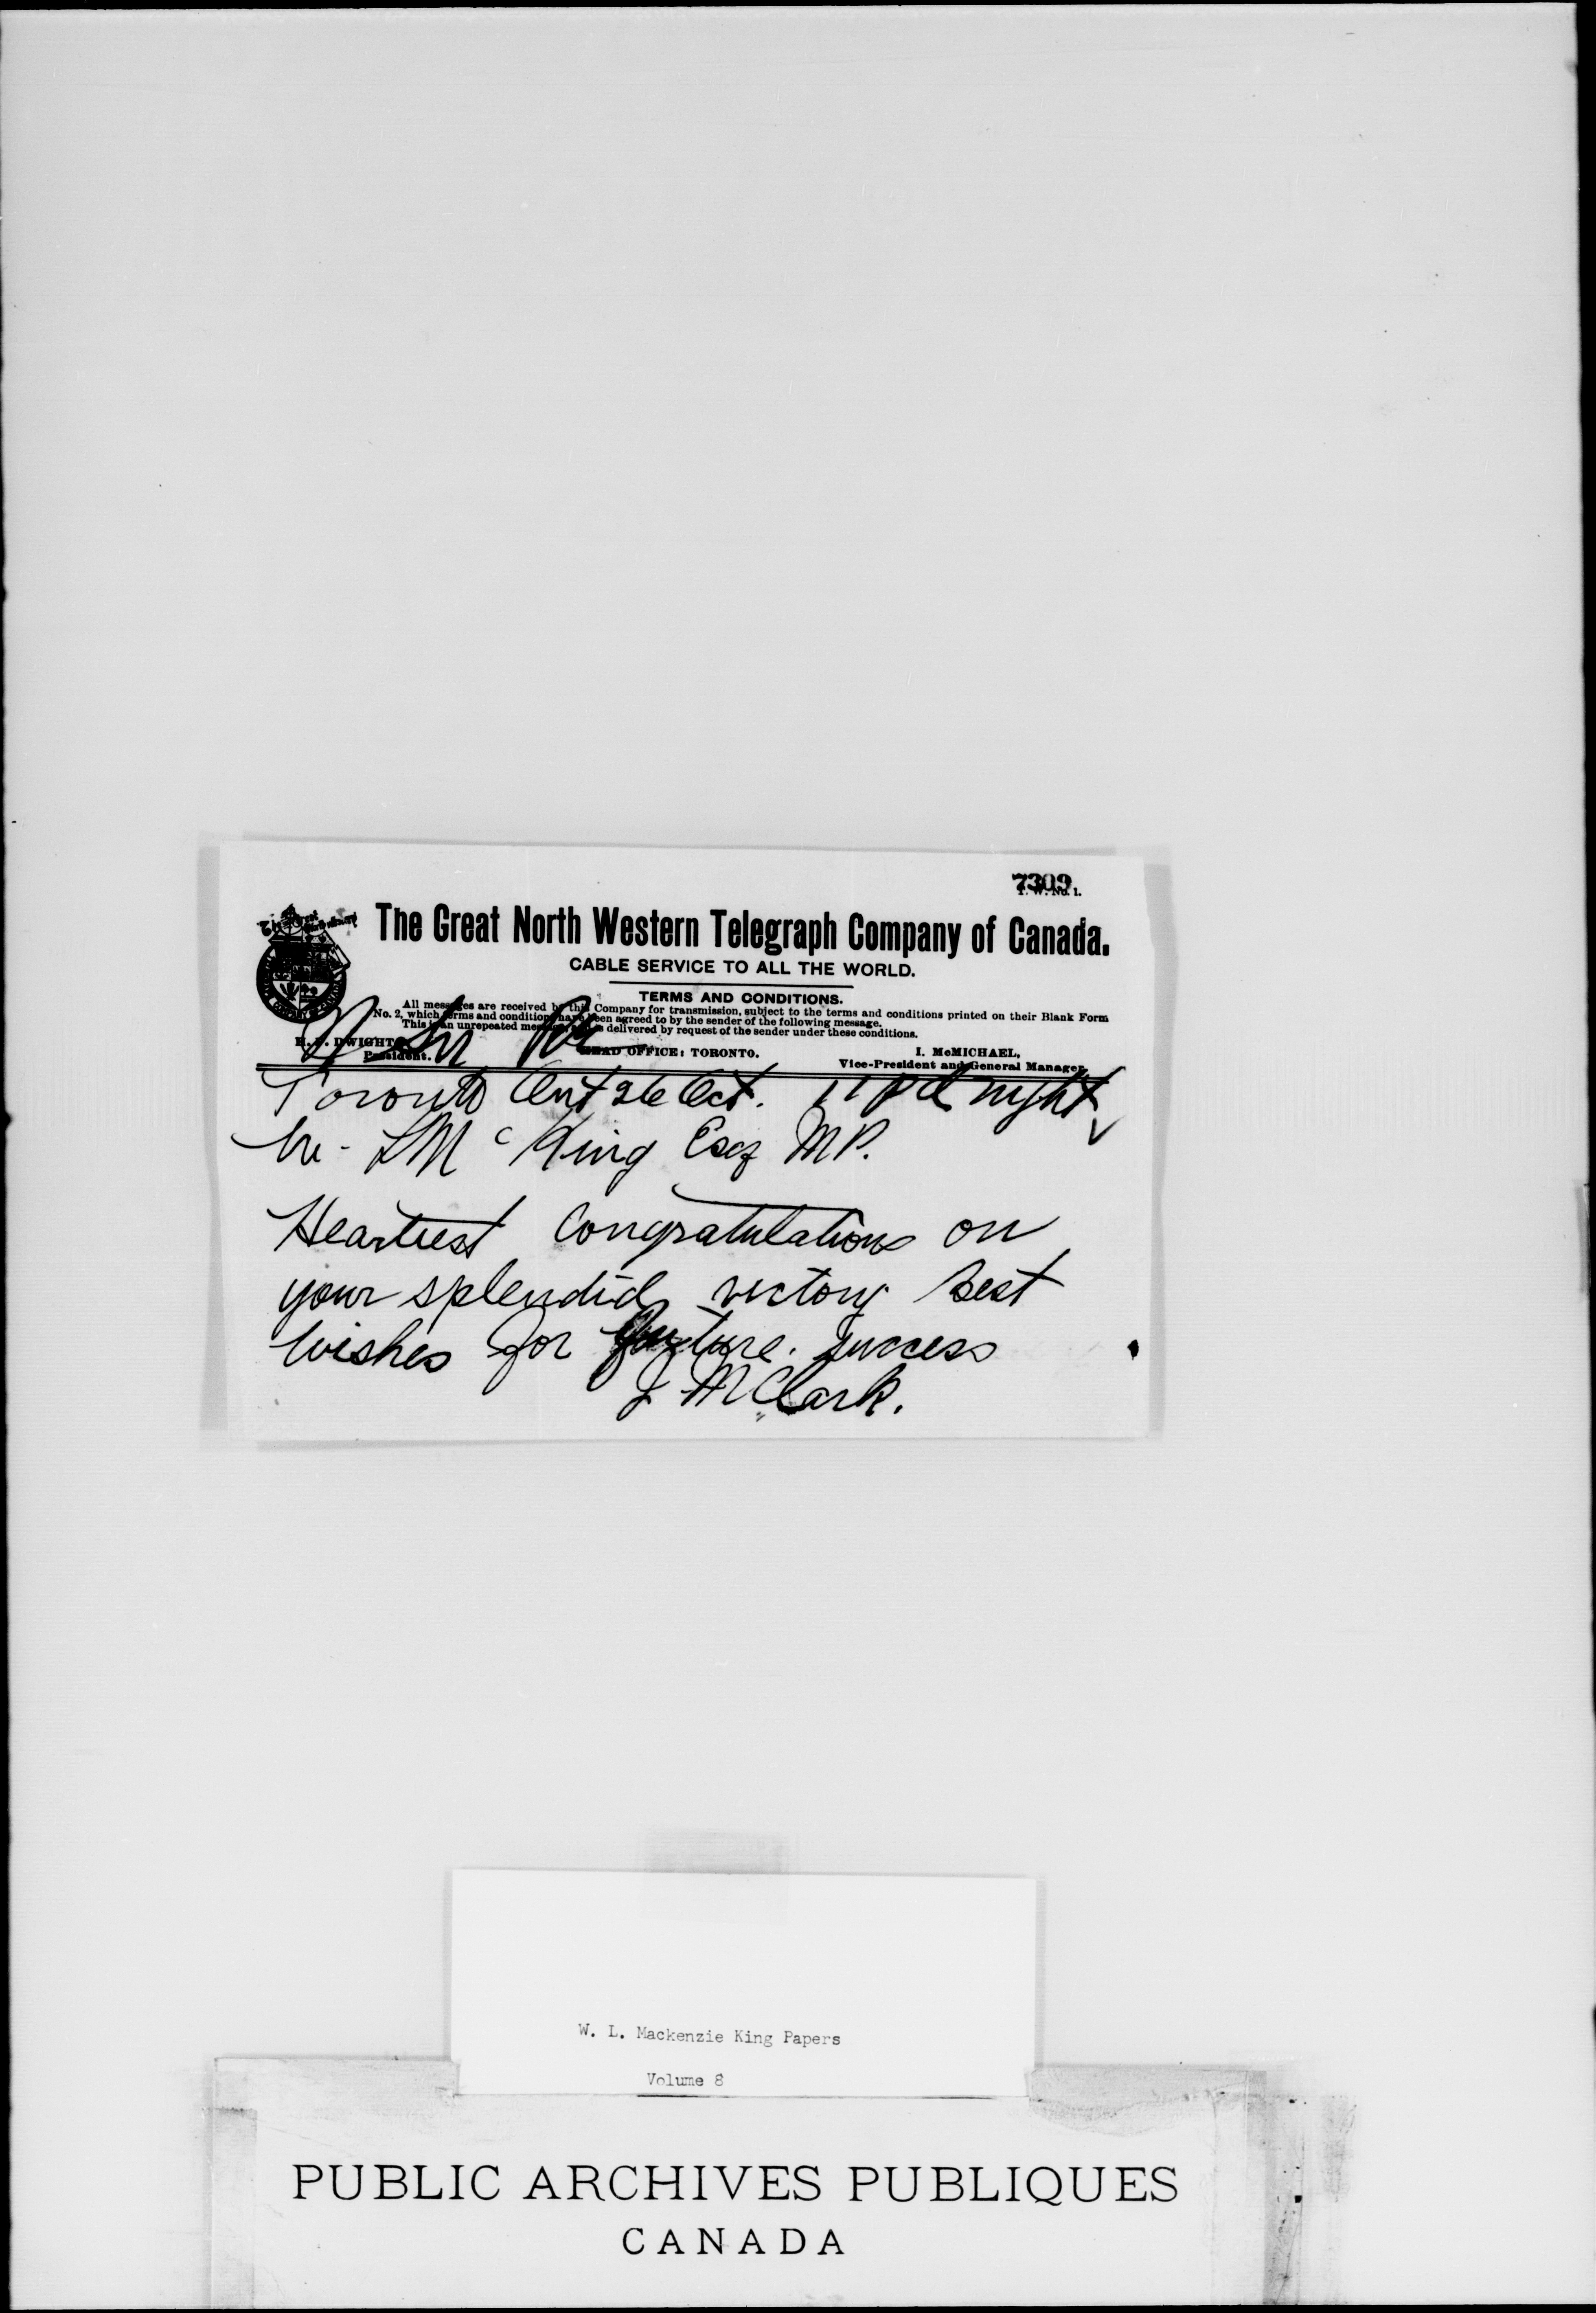 7309
T. W. No. 1.
The Great North Western Telegraph Company of Canada.
CABLE SERVICE TO ALL THE WORLD.
TERMS AND CONDITIONS.
All messages are received by this Company for transmission, subject to the terms and conditions printed on their Blank Form
No. 2, which terms and conditions have been agreed to by the sender of the following message.
This is an unrepeated message and is delivered by request of the sender under these conditions.
H. P. DWIGHT, HEAD OFFICE: TORONTO. I. McMICHAEL,
President. Vice-President and General Manager.
Toronto Ont 26 Oct. 11 pd night
W. L Mc King Esq MP.
Heartiest Congratulations on
your splendid victory best
wishes for future. success
J M Clark.
W. L. Mackenzie King Papers
Volume 8
PUBLIC ARCHIVES PUBLIQUES
CANADA